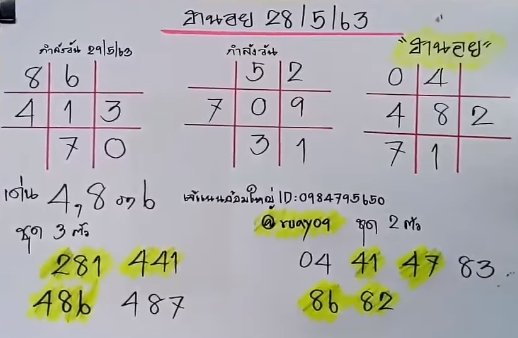 ฮานอย 28/5/63
กำลังวัน 29/5/63
8 6
4 1 3
7 0
กำลังวัน
5 2
7 0 9
3 1
"ฮานอย"
0 4
4 8 2
7 1
เด่น 4,8 06
ชุด 3 ตัว
281 441
486 487
ID:0984795650
@ruay09 ชุด 2 ตัว
04 41 47 83
86 82